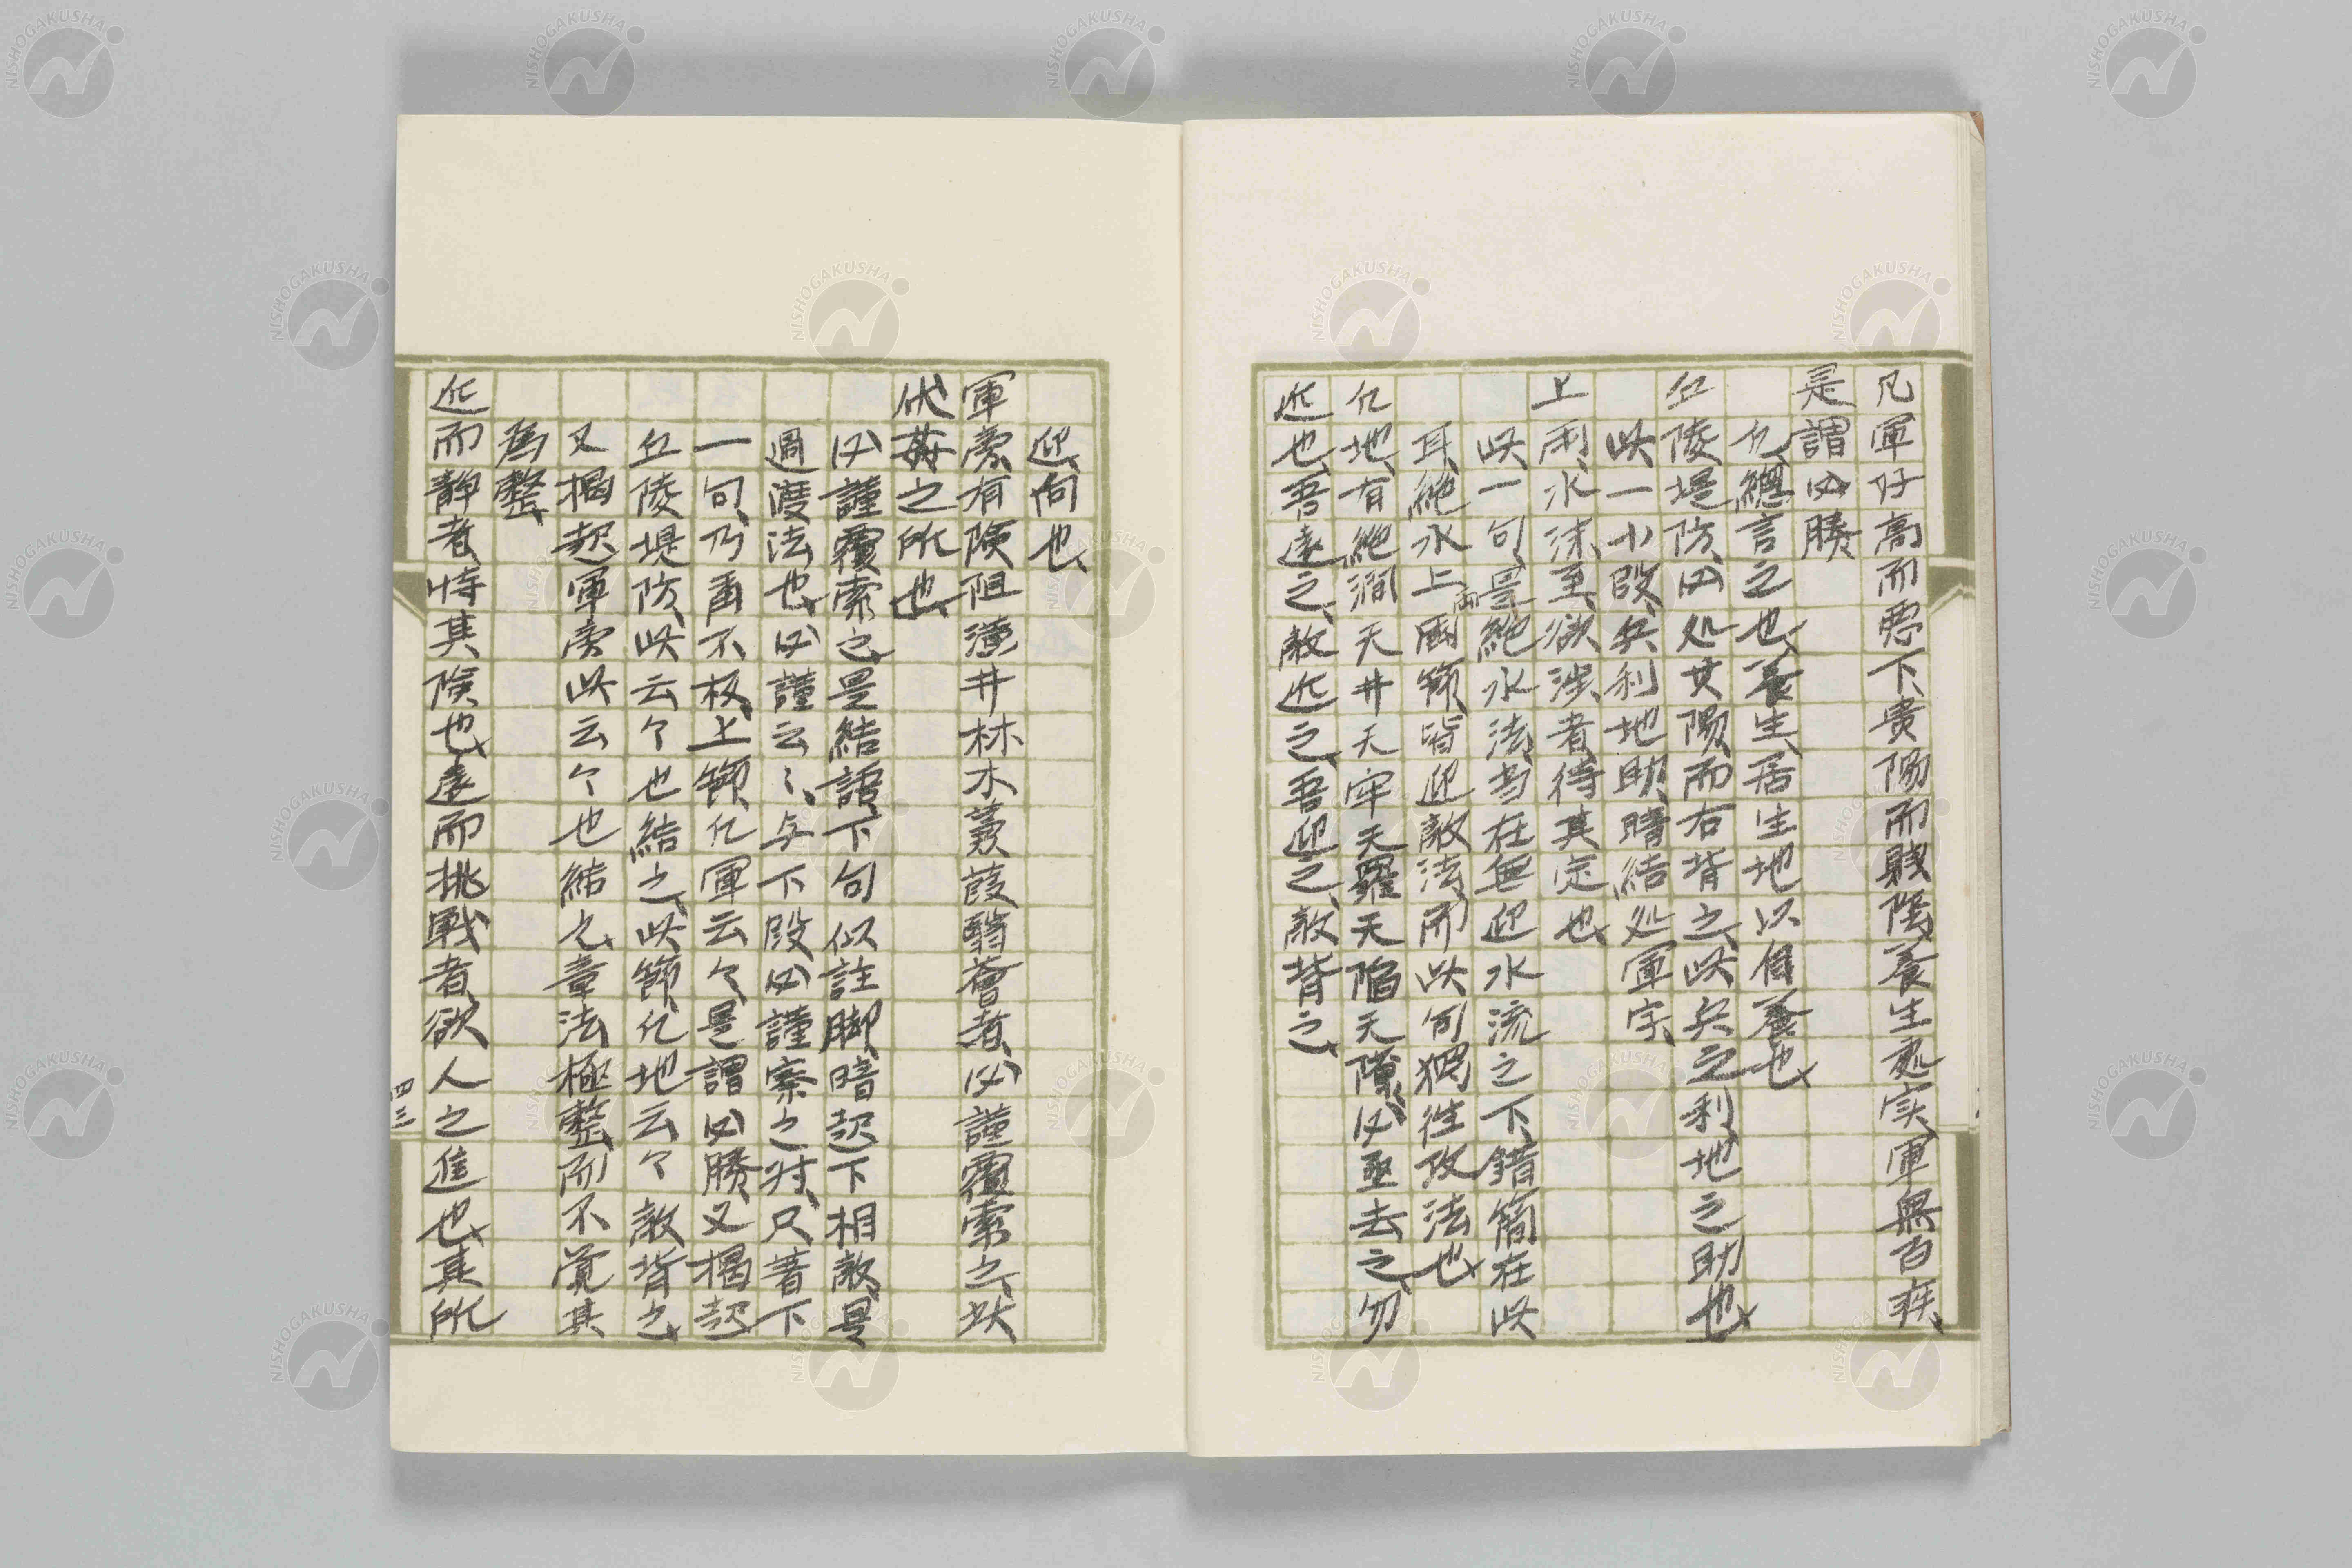 凡軍好高而悪下、貴陽而賤陰、養生處实、軍無百疾、
是謂必勝
凡、總言之也、養生、居生地以自養也、
丘陵堤防、必処其陽、而右背之、此兵之利、地之助也、
此一小段、兵利地助、暗結処軍字、
上雨、水沫至、欲涉者、待其定也、
此一句、是絶水法、当在無迎水流之下、錯簡在此
耳、絶水上雨兩節、皆迎敵法、所以何獨往攻法也、
凡地、有絶澗天井天牢天羅天陥天隙、必亟去之、勿
近也、吾遠之、敵近之、吾迎之、敵背之、
迎、向也、
軍旁、有険阻潢井林木蒹葭翳薈者、必謹覆索之、此
伏姦之所也、
必謹覆索之、是結語、下句似註脚、暗起下相敵、是
過渡法也、必謹云〻、与下段必謹察之対、只著下
一句、乃重不板、上節凡軍云々、是謂必勝、又掲起
丘陵堤防、此云々也結之、此節、凡地云々敵背之、
又掲起軍旁此云々也結之、章法極整、而不覚其
為整、
近而静者、恃其険也、遠而挑戦者、欲人之進也、其所
四三
NISHOGAKUSHA